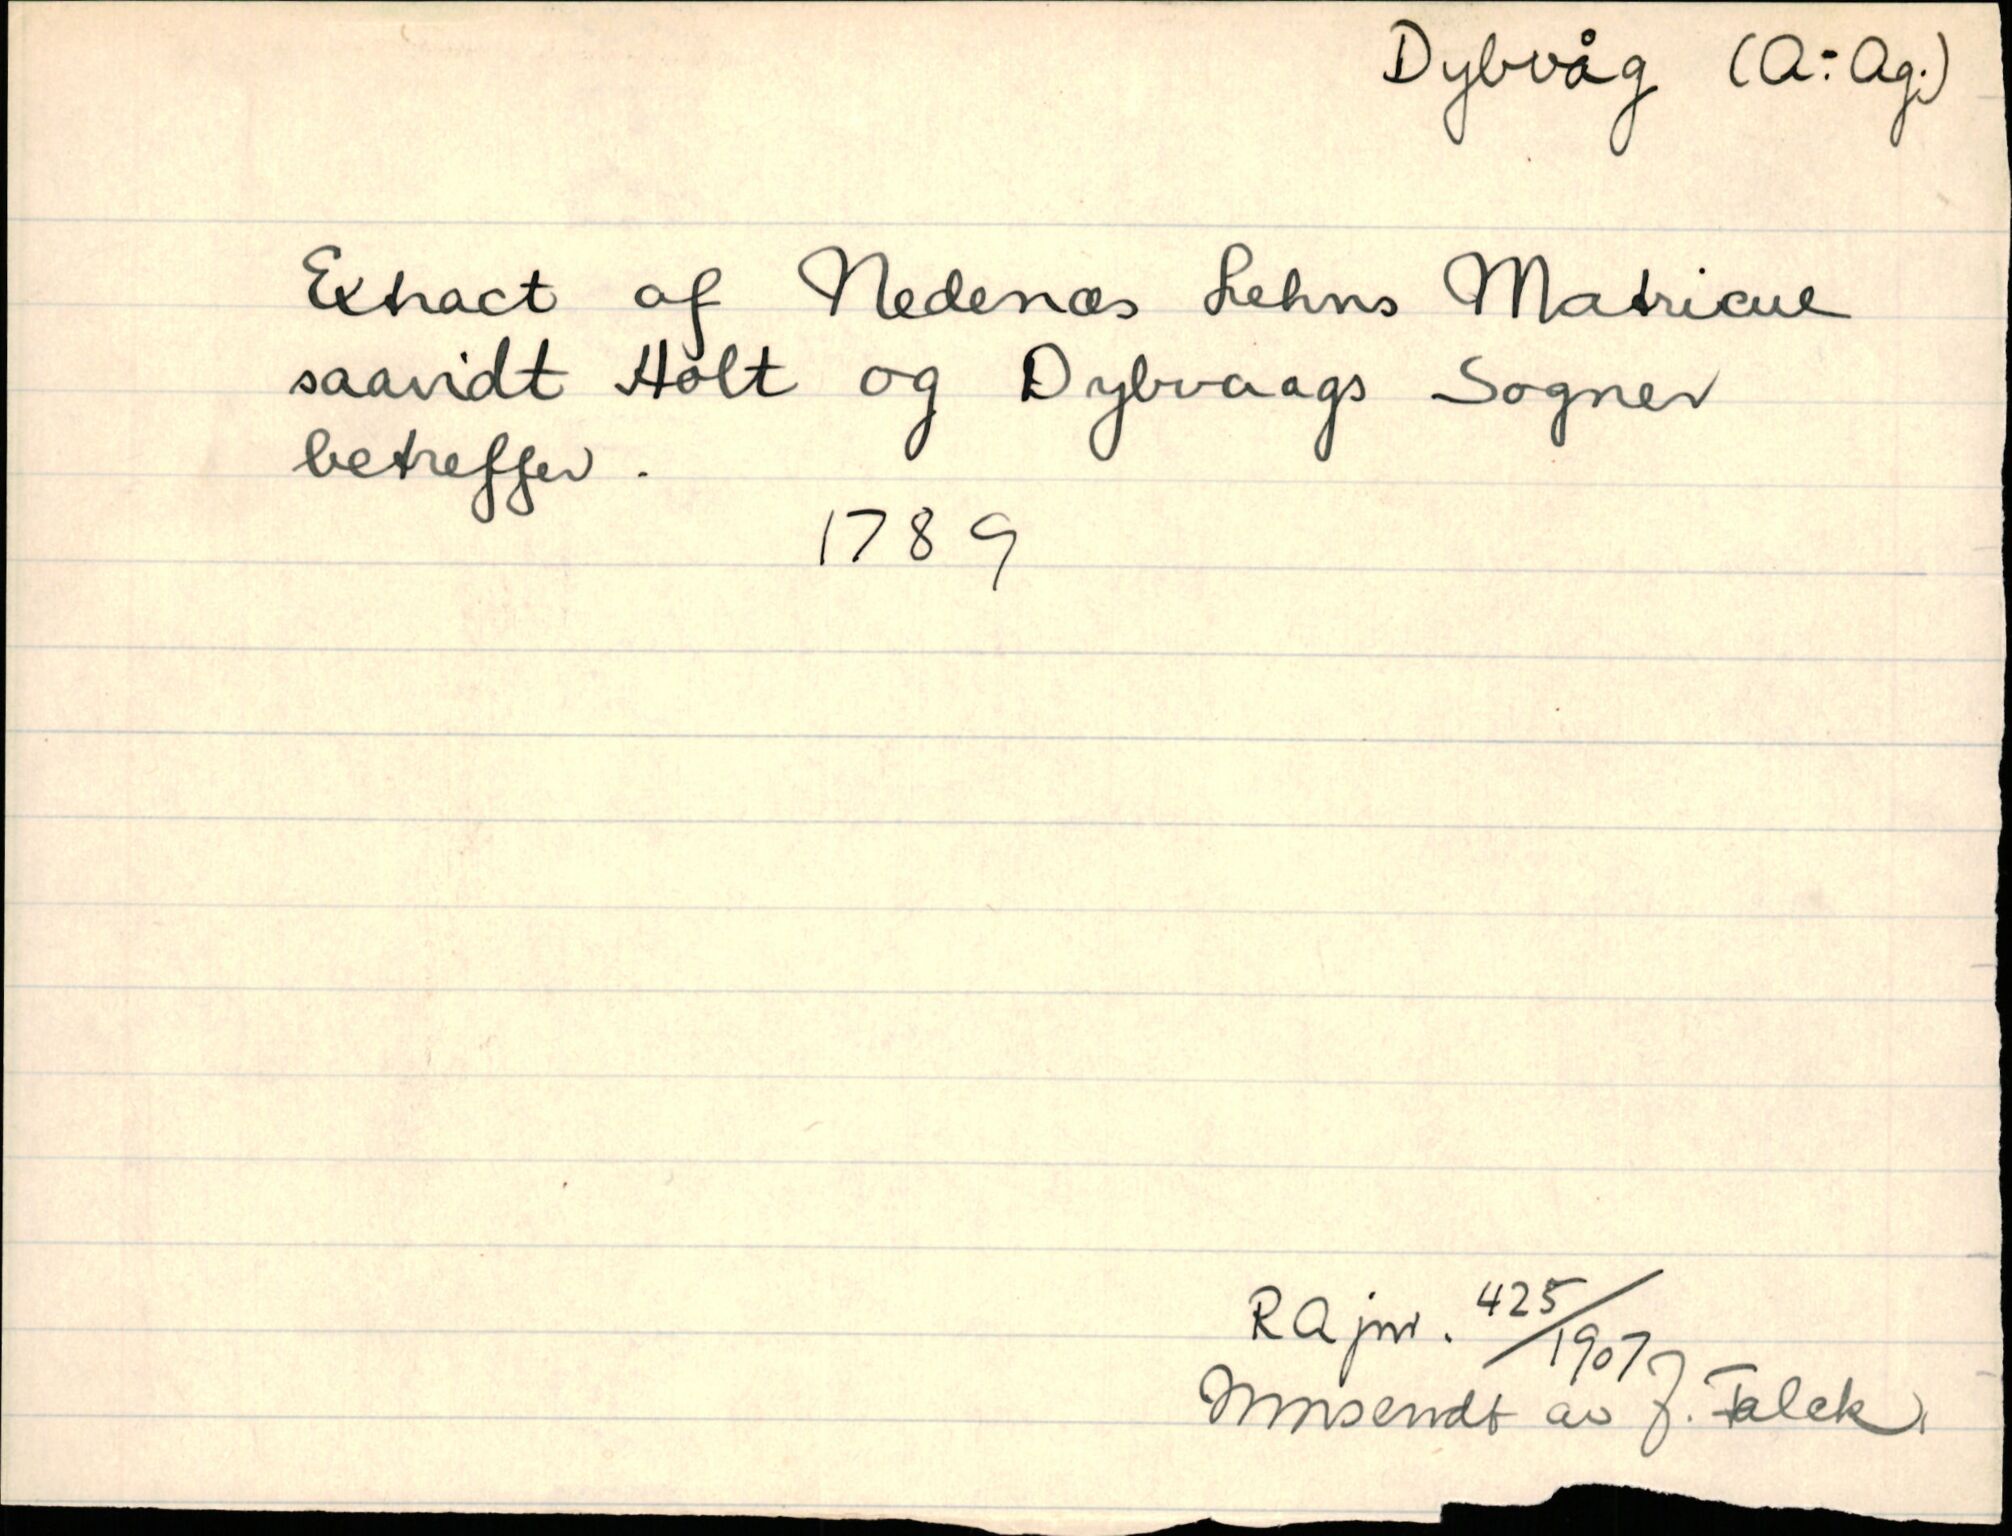 Dybvåg (A-Ag.)
Extract af Nedenæs Lehns Matricul
saavidt Holt og Dybvaags Sogner
betreffer.
1789
RA jnr. 425/1907
Innsendt av J. Falck.